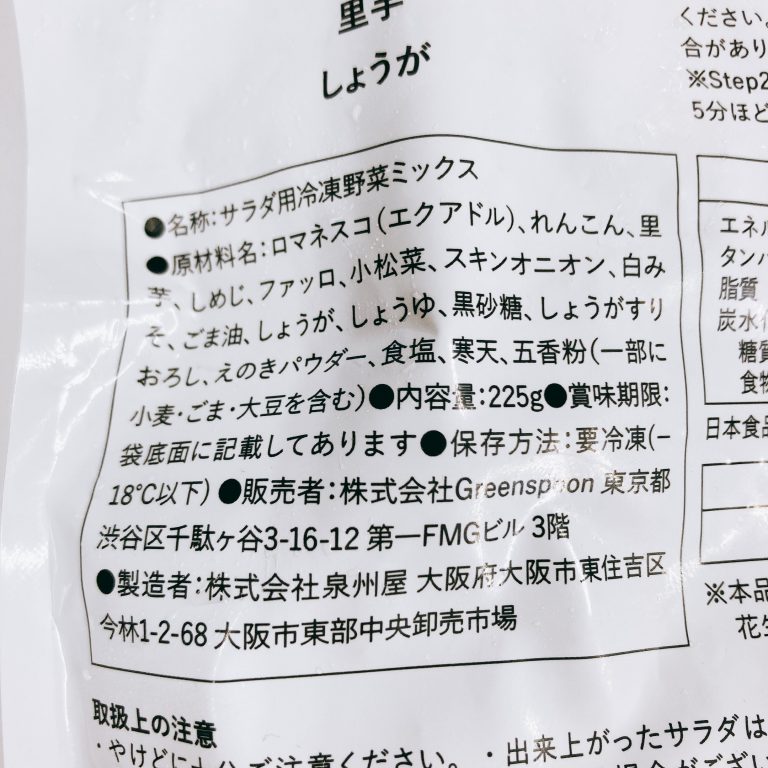 里芋
しょうが
ください。
合があり
※Step2
5分ほど
●名称：サラダ用冷凍野菜ミックス
●原材料名：ロマネスコ（エクアドル）、れんこん、里
芋、しめじ、ファッロ、小松菜、スキンオニオン、白み
そ、ごま油、しょうが、しょうゆ、黒砂糖、しょうがすり
おろし、えのきパウダー、食塩、寒天、五香粉（一部に
小麦・ごま・大豆を含む）●内容量：225g●賞味期限：
袋底面に記載してあります●保存方法：要冷凍（−
18℃以下）●販売者：株式会社Greenspoon 東京都
渋谷区千駄ヶ谷3-16-12 第一FMGビル 3階
●製造者：株式会社泉州屋 大阪府大阪市東住吉区
今林1-2-68 大阪市東部中央卸売市場
エネル
タンパ
脂質
炭水化
糖質
食物
日本食品
※本品
花生
取扱上の注意
・やけどに十分ご注意ください。・出来上がったサラダは